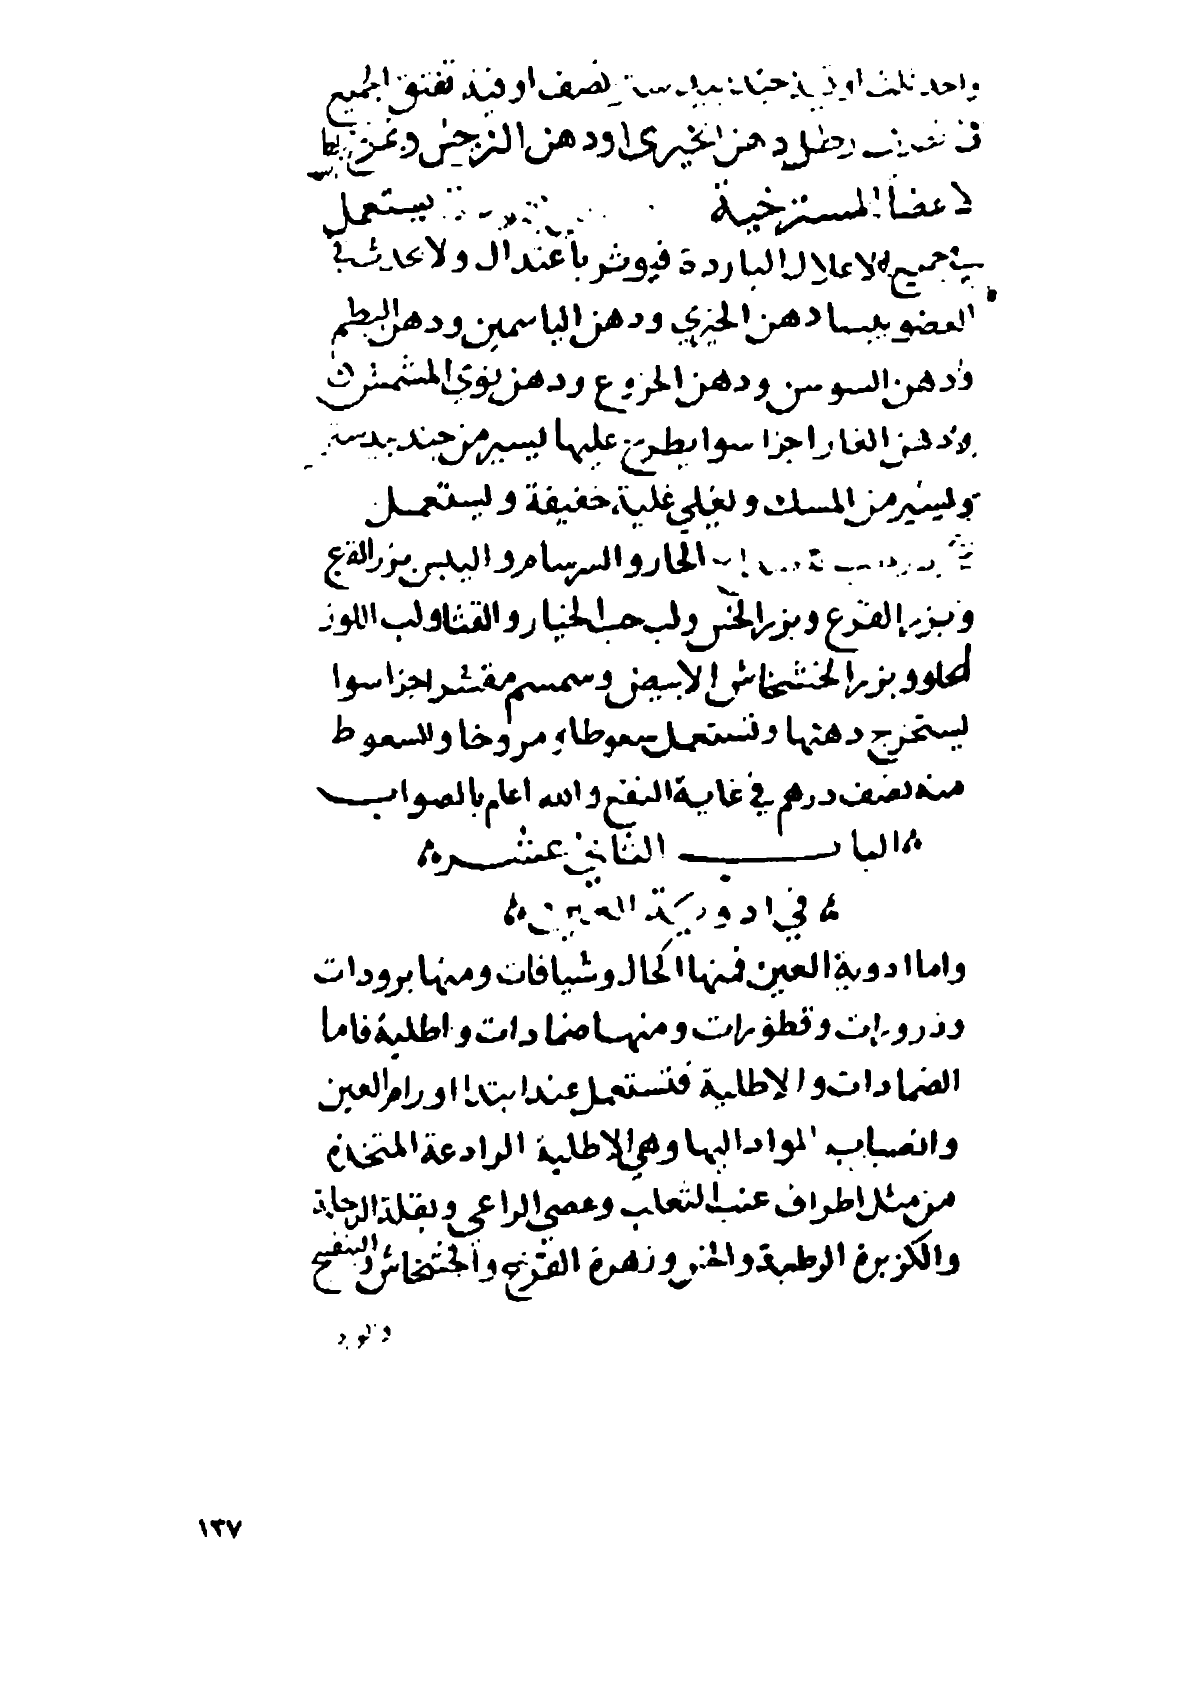 واحد ثلث اوقية جندبيدستر نصف اوقية تفتق الجميع
في نصف رطل دهن الخيرى او دهن النرجس وتمرخ بها
الاعضا المسترخية يستعمل
في جميع الاعلال الباردة فيوثر باعتدال ولا يحدث في
العضو يبسا دهن الخيري ودهن الياسمين ودهن البطم
ودهن السوسن ودهن الخروع ودهن نوي المشمش
ودهن الغار اجزا سوا يطرح عليها يسير من جندبيدستر
ويسير من المسك ويغلي غلية خفيفة ويستعمل
الحار والسرسام واليبس بزر القرع
وبزر القرع وبزر الخس ولب حب الخيار والقثا ولب اللوز
الحلو وبزر الخشخاش الابيض وسمسم مقشر اجزا سوا
يستخرج دهنها وتستعمل سعوطا ومروخا والسعوط
منه نصف درهم في غاية النفع والله اعلم بالصواب
الباب الثاني عشر
في ادوية العين
واما ادوية العين فمنها اكحال وشيافات ومنها برودات
وذرورات وقطورات ومنها ضمادات واطلية فاما
الضمادات والاطلية فتستعمل عند ابتدا اورام العين
وانصباب المواد اليها وهي الاطلية الرادعة المتخذة
من مثل اطراف عنب الثعلب وعصي الراعي وبقلة الرجلة
والكزبرة الرطبة والخس وزهرة القرع والخشخاش والبنفسج
والورد
١٣٧